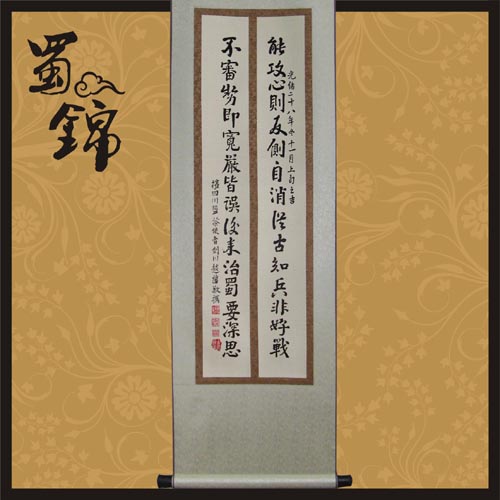 蜀錦
能攻心則反側自消從古知兵非好戰
光緒二十八年冬十一月上旬之吉
不審勢即寬嚴皆誤後來治蜀要深思
權四川鹽茶使者劍川趙藩敬撰